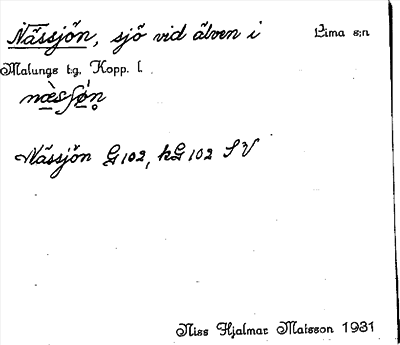 Nässjön, sjö vid älven i Lima s:n
Malungs t:g, Kopp. l.
næ̀sʃǿn̥
Nässjön G102, kG102 SV
Niss Hjalmar Matsson 1931